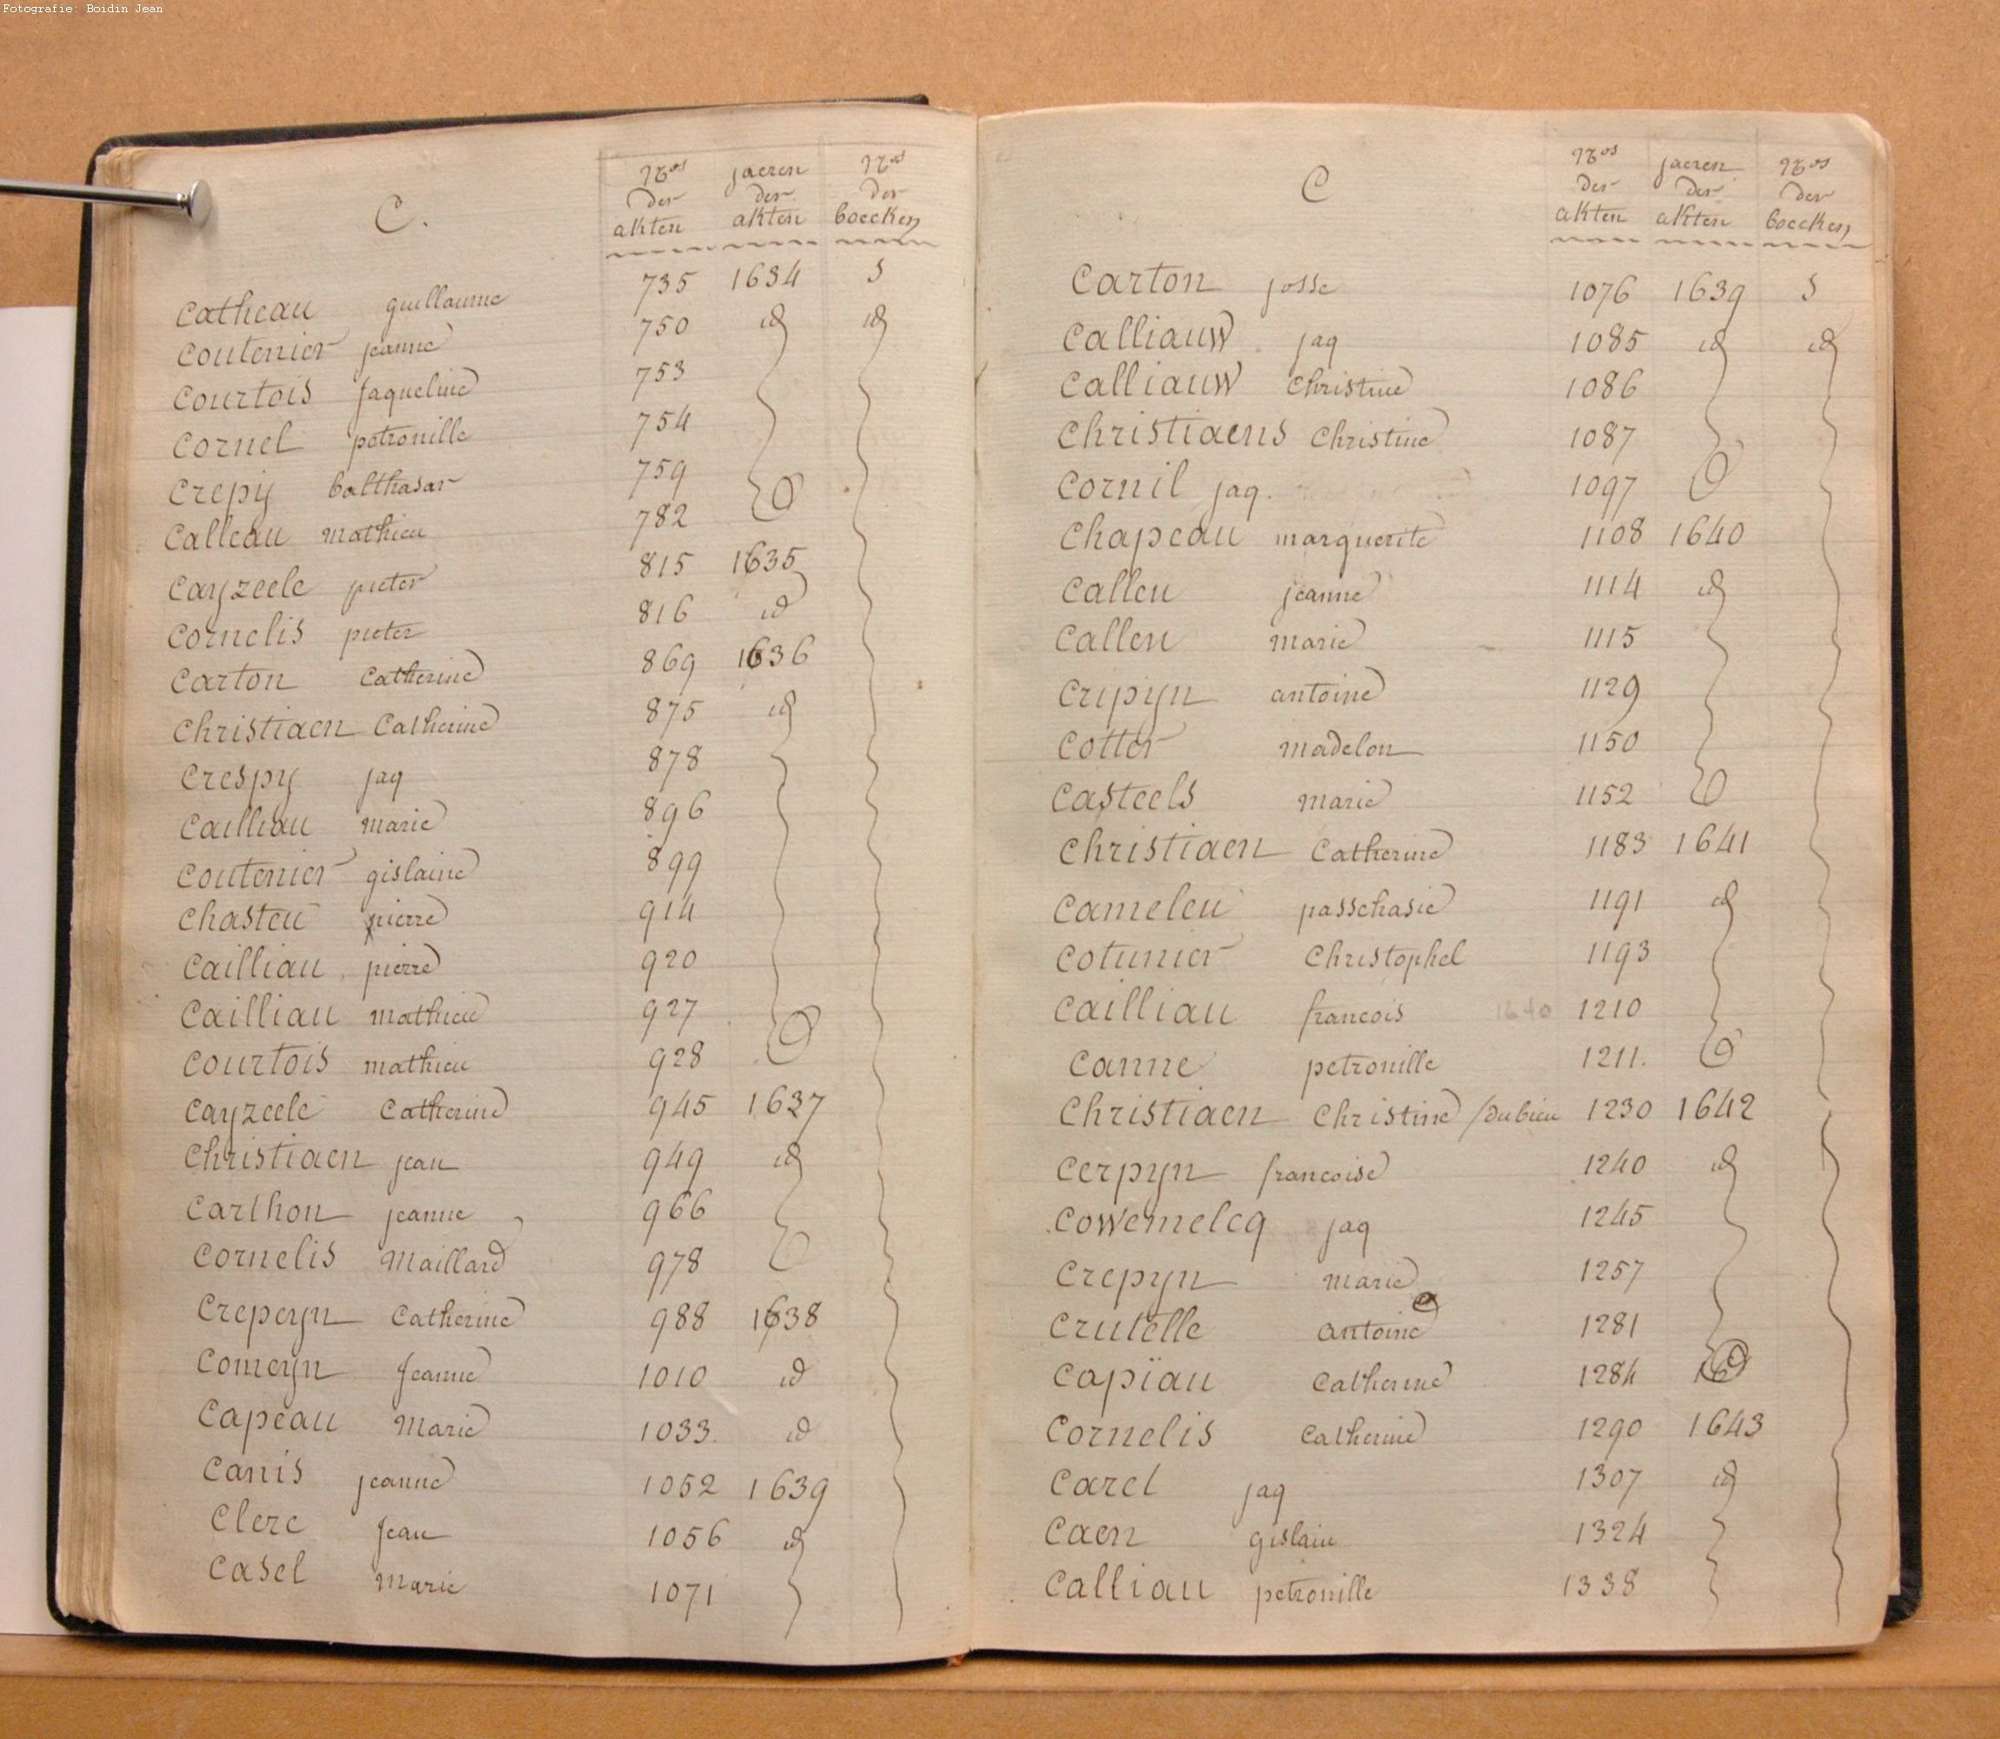 Fotografie: Boidin Jean
C.
Nos jaeren Nos
der der der
akten akten boecken
Catheau guillaume 735 1634 5
Coutenier jeanne 750 id id
Courtois Jaqueline 753
Cornel petronille 754
Crepy balthasar 759
Calleau mathieu 782
Cayzeele pieter 815 1635
Cornelis pieter 816 id
Carton Catherine 869 1636
Christiaen Catherine 875 id
Crespy jaq 878
Cailliau marie 896
Coutenier gislaine 899
Chasteu pierre 914
Cailliau pierre 920
Cailliau mathieu 927
Courtois mathieu 928
Cayzeele Catherine 945 1637
Christiaen jean 949 id
Carthon jeanne 966
Cornelis Maillard 978
Crepeyn Catherine 988 1638
Comeyn Jeanne 1010 id
Capeau Marie 1033. id
Canis jeanne 1052 1639
Clerc Jean 1056 id
Casel marie 1071
C
Nos jaeren Nos
der der der
akten akten boecken
Carton josse 1076 1639 5
Calliauw jaq 1085 id id
Calliauw Christine 1086
Christiaens Christine 1087
Cornil jaq. 1097
Chapeau marguerite 1108 1640
Calleu jeanne 1114 id
Calleu marie 1115
Crepyn antoine 1129
Cotter madelon 1150
Casteels marie 1152
Christiaen Catherine 1183 1641
Cameleu passchasie 1191 id
Cotunier Christophel 1193
Cailliau francois 1640 1210
Canne petronille 1211.
Christiaen Christine /dubieu 1230 1642
Cerpyn francoise 1240 id
Cowemelcq jaq 1245
Crepyn marie 1257
Crutelle antoine 1281
Capïau Catherine 1284
Cornelis Catherine 1290 1643
Carel jaq 1307 id
Caen gislain 1324
Calliau petronille 1338